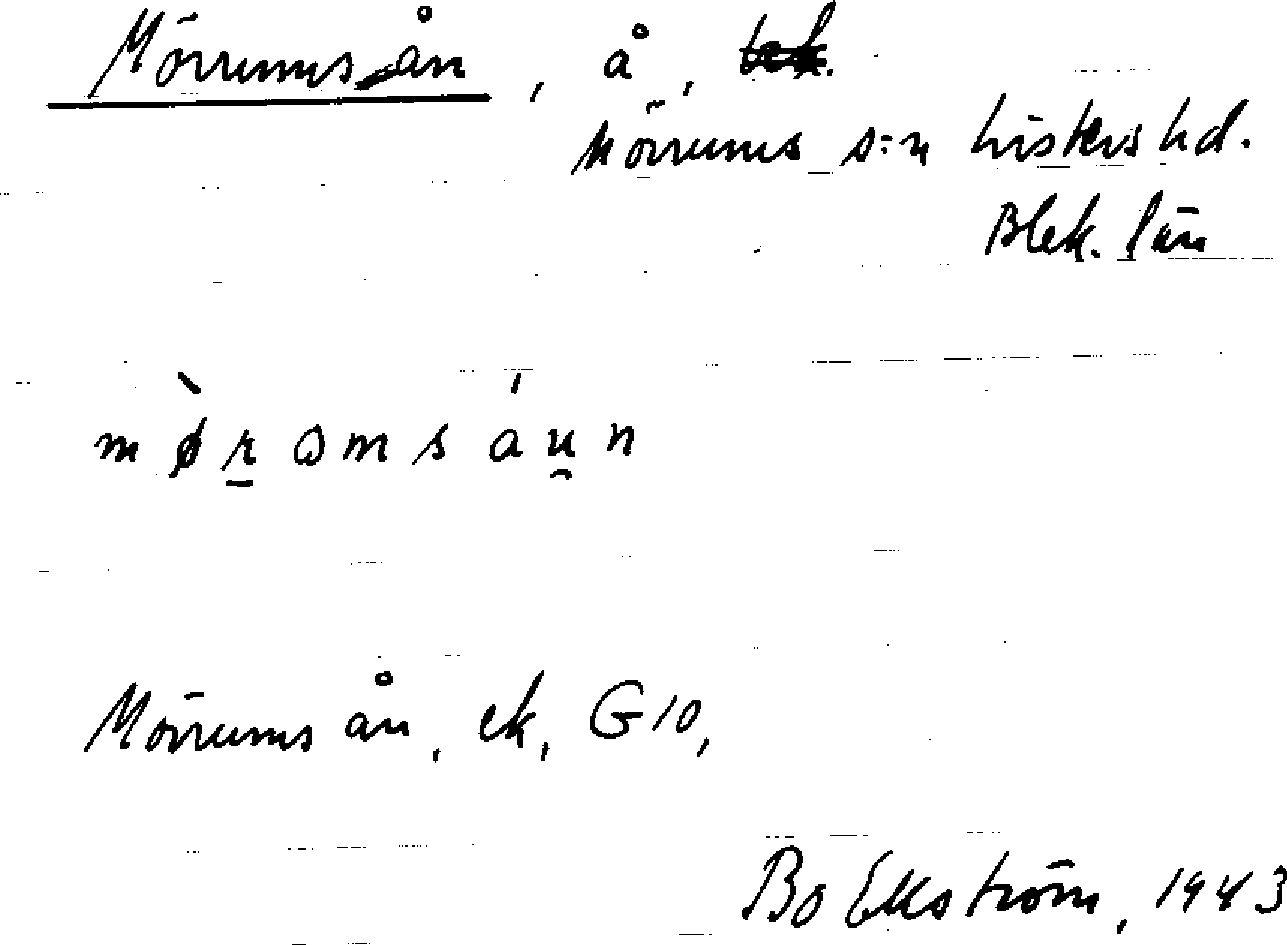 Mörrumsån, å,
Mörrums s:n Listers hd.
Blek. län
mø̀r̠omsáu̯n
Mörrumsån, ek, G10,
Bo Ekström, 1943